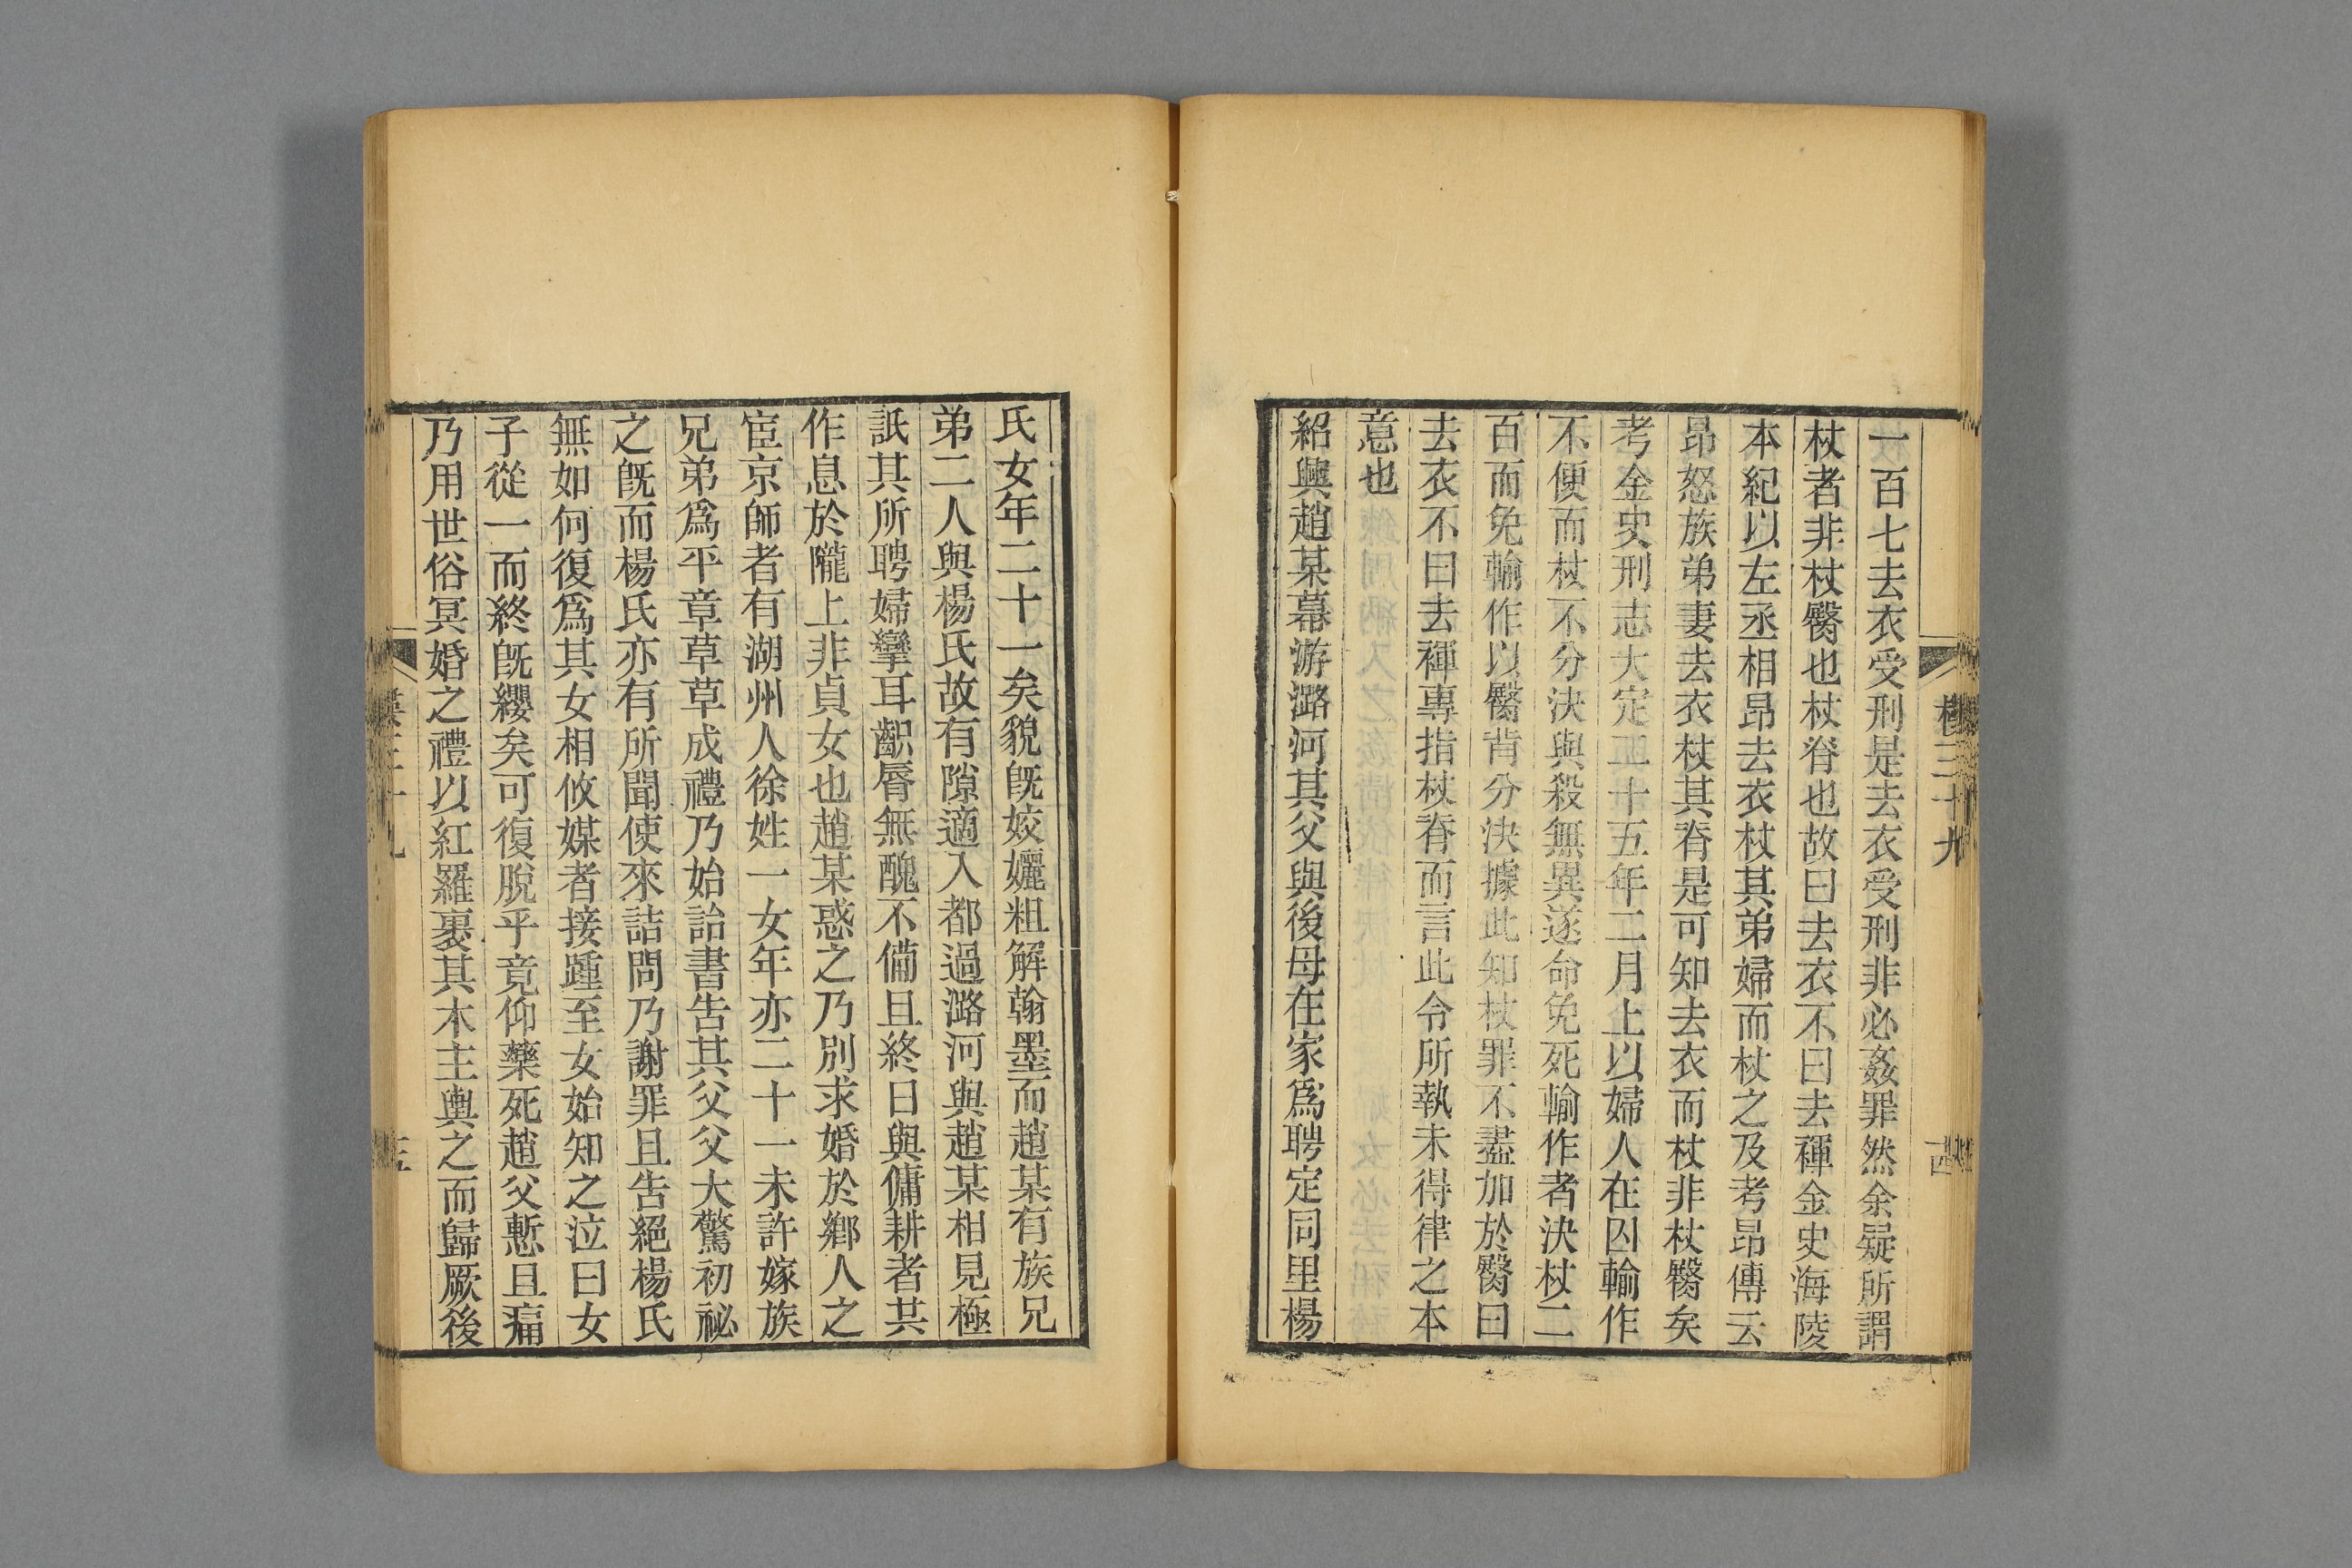 一百七去衣受刑是去衣受刑非必姦罪然余疑所謂
杖者非杖臀也杖脊也故曰去衣不曰去褌金史海陵
本紀以左丞相昂去衣杖其弟婦而杖之及考昂傳云
昂怒族弟妻去衣杖其脊是可知去衣而杖非杖臀矣
考金史刑志大定二十五年二月上以婦人在囚輸作
不便而杖不分決與殺無異遂命免死輸作者決杖二
百而免輸作以臀背分決據此知杖罪不盡加於臀曰
去衣不曰去褌專指杖脊而言此令所執未得律之本
意也
紹興趙某幕游潞河其父與後母在家爲聘定同里楊
氏女年二十一矣貌旣姣孋粗解翰墨而趙某有族兄
弟二人與楊氏故有隙適入都過潞河與趙某相見極
詆其所聘婦攣耳齞脣無醜不備且終日與傭耕者共
作息於隴上非貞女也趙某惑之乃別求婚於鄉人之
宦京師者有湖州人徐姓一女年亦二十一未許嫁族
兄弟爲平章草草成禮乃始詒書告其父父大驚初祕
之旣而楊氏亦有所聞使來詰問乃謝罪且告絕楊氏
無如何復爲其女相攸媒者接踵至女始知之泣曰女
子從一而終旣纓矣可復脫乎竟仰藥死趙父慙且痛
乃用世俗冥婚之禮以紅羅裹其木主輿之而歸厥後